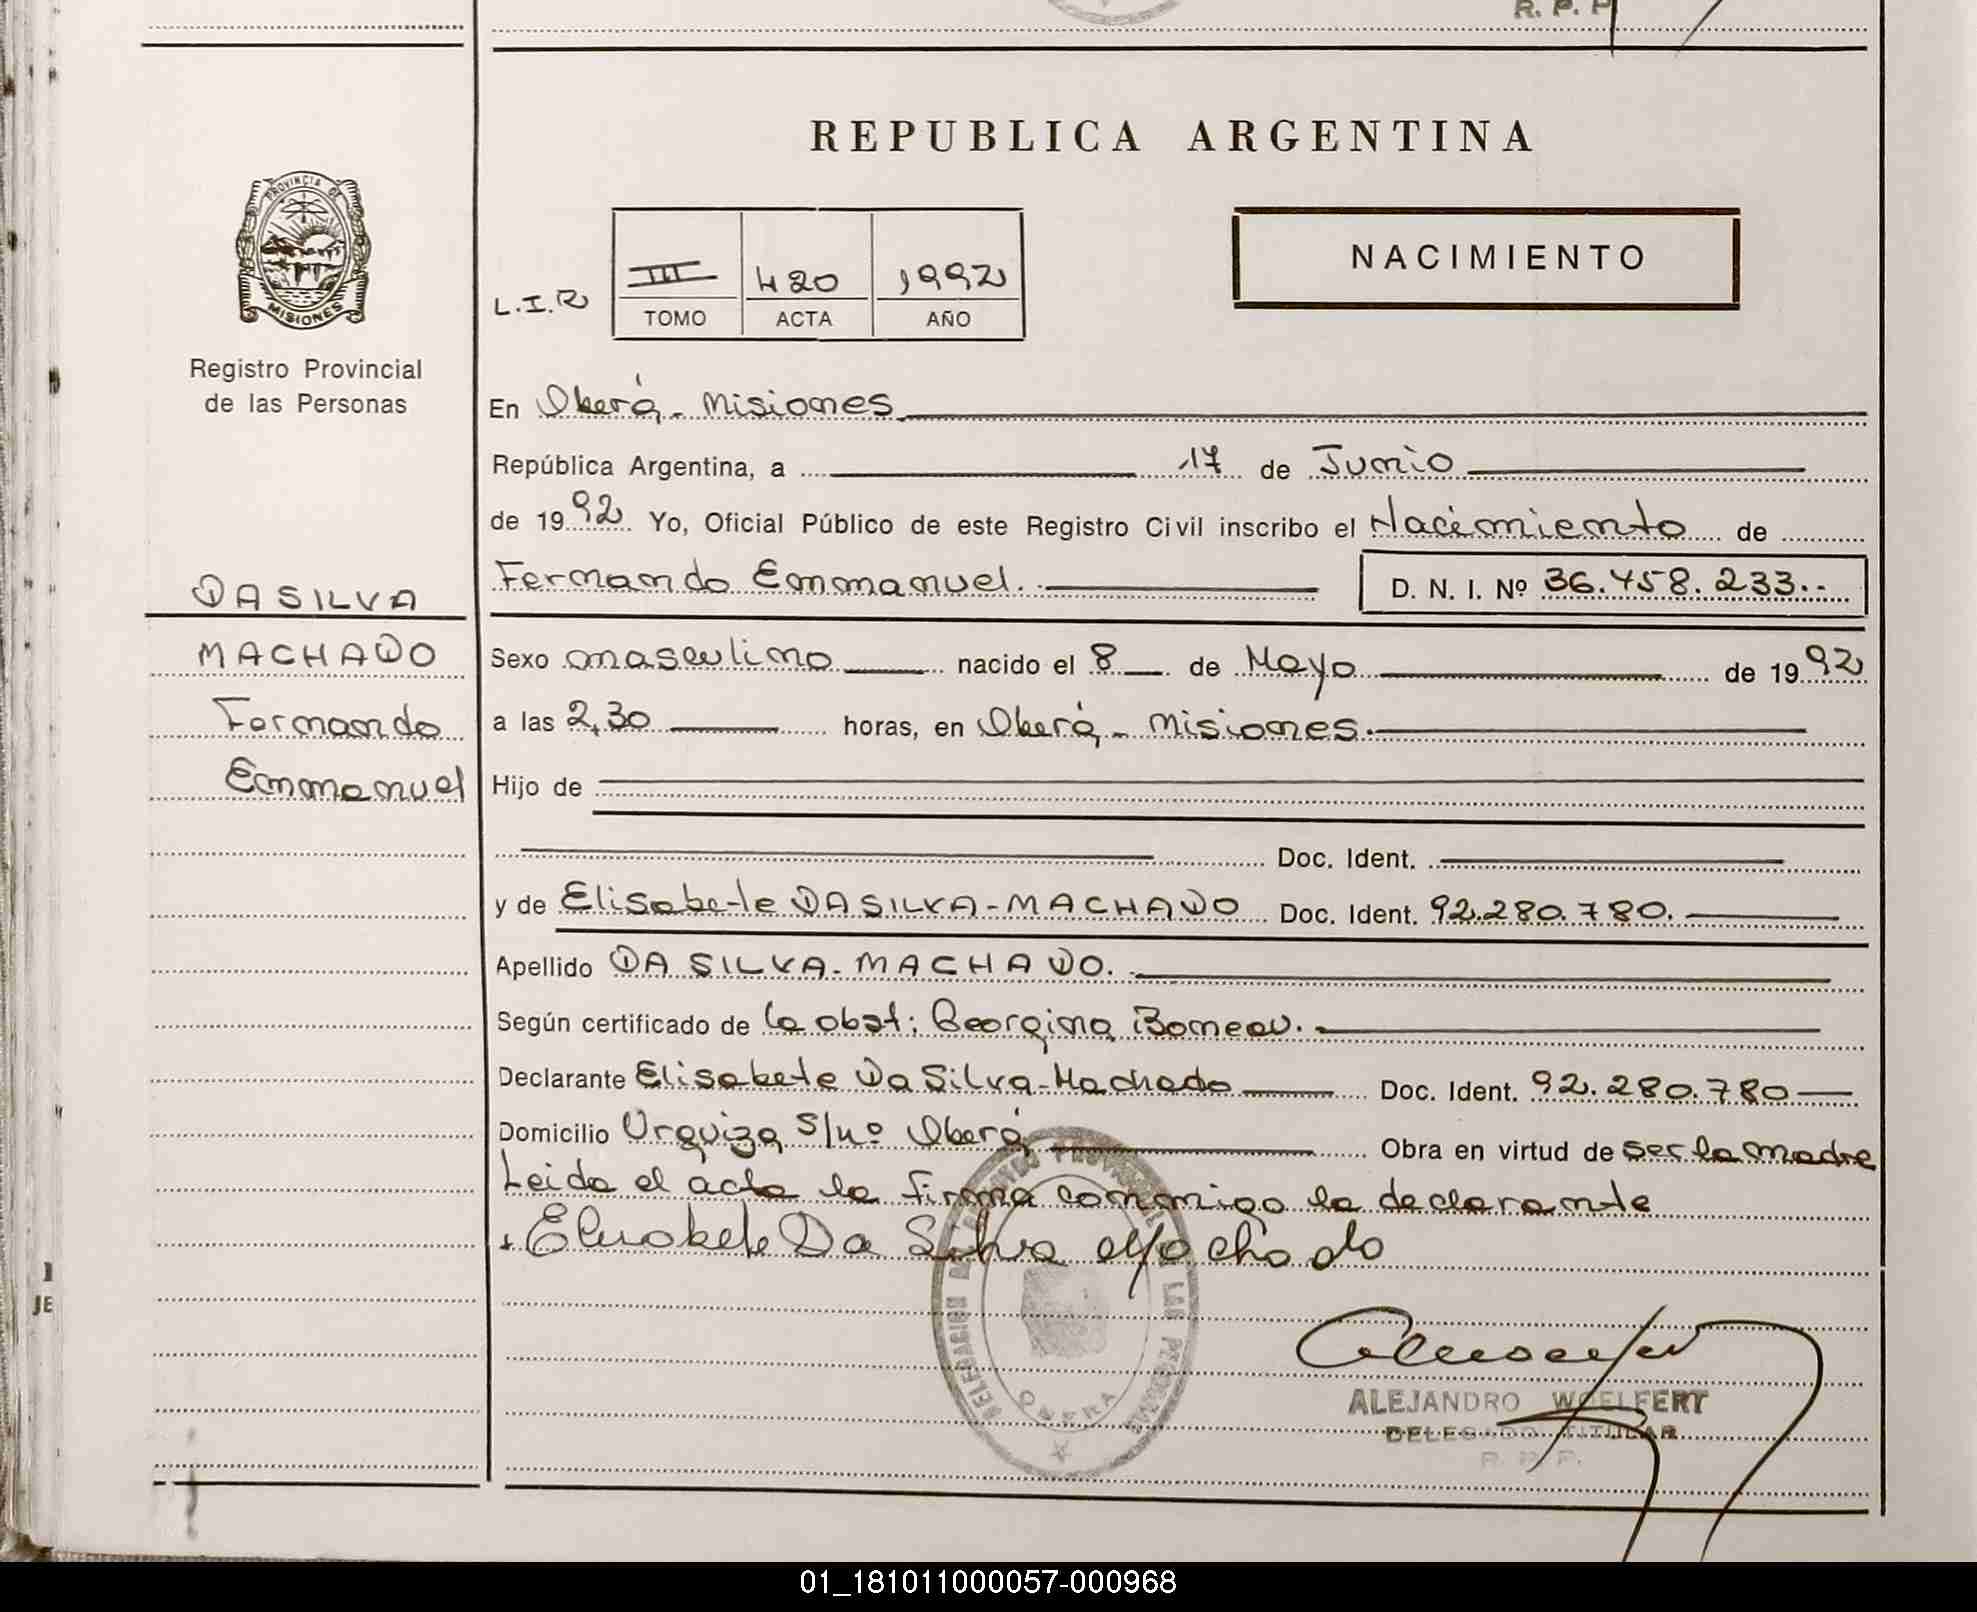 R. P. P.
REPUBLICA ARGENTINA
PROVINCIA DE
MISIONES
Registro Provincial
de las Personas
NACIMIENTO
L.I.R III 420 1992
TOMO ACTA AÑO
En Oberá - Misiones
República Argentina, a 17 de Junio
de 1992 Yo, Oficial Público de este Registro Civil inscribo el Nacimiento de
Fernando Emmanuel. D. N. I. Nº 36.458.233..
DA SILVA
MACHADO
Fernando
Emmanuel
Sexo masculino nacido el 8 de Mayo de 1992
a las 2,30 horas, en Oberá - Misiones.
Hijo de
Doc. Ident.
y de Elisabete DA SILVA - MACHADO Doc. Ident. 92.280.780.
Apellido DA SILVA - MACHADO.
Según certificado de la obst: Georgina Boneau.
Declarante Elisabete Da Silva - Machado Doc. Ident. 92.280.780
Domicilio Urquiza S/nº Oberá Obra en virtud de ser la madre
Leida el acta la firma conmigo la declarante
Elisabete Da Silva Machado
DELEGACION REGISTRO PROVINCIAL DE LAS PERSONAS
OBERA
ALEJANDRO WOELFERT
DELEGADO TITULAR
R. P. P.
JE
01_181011000057-000968